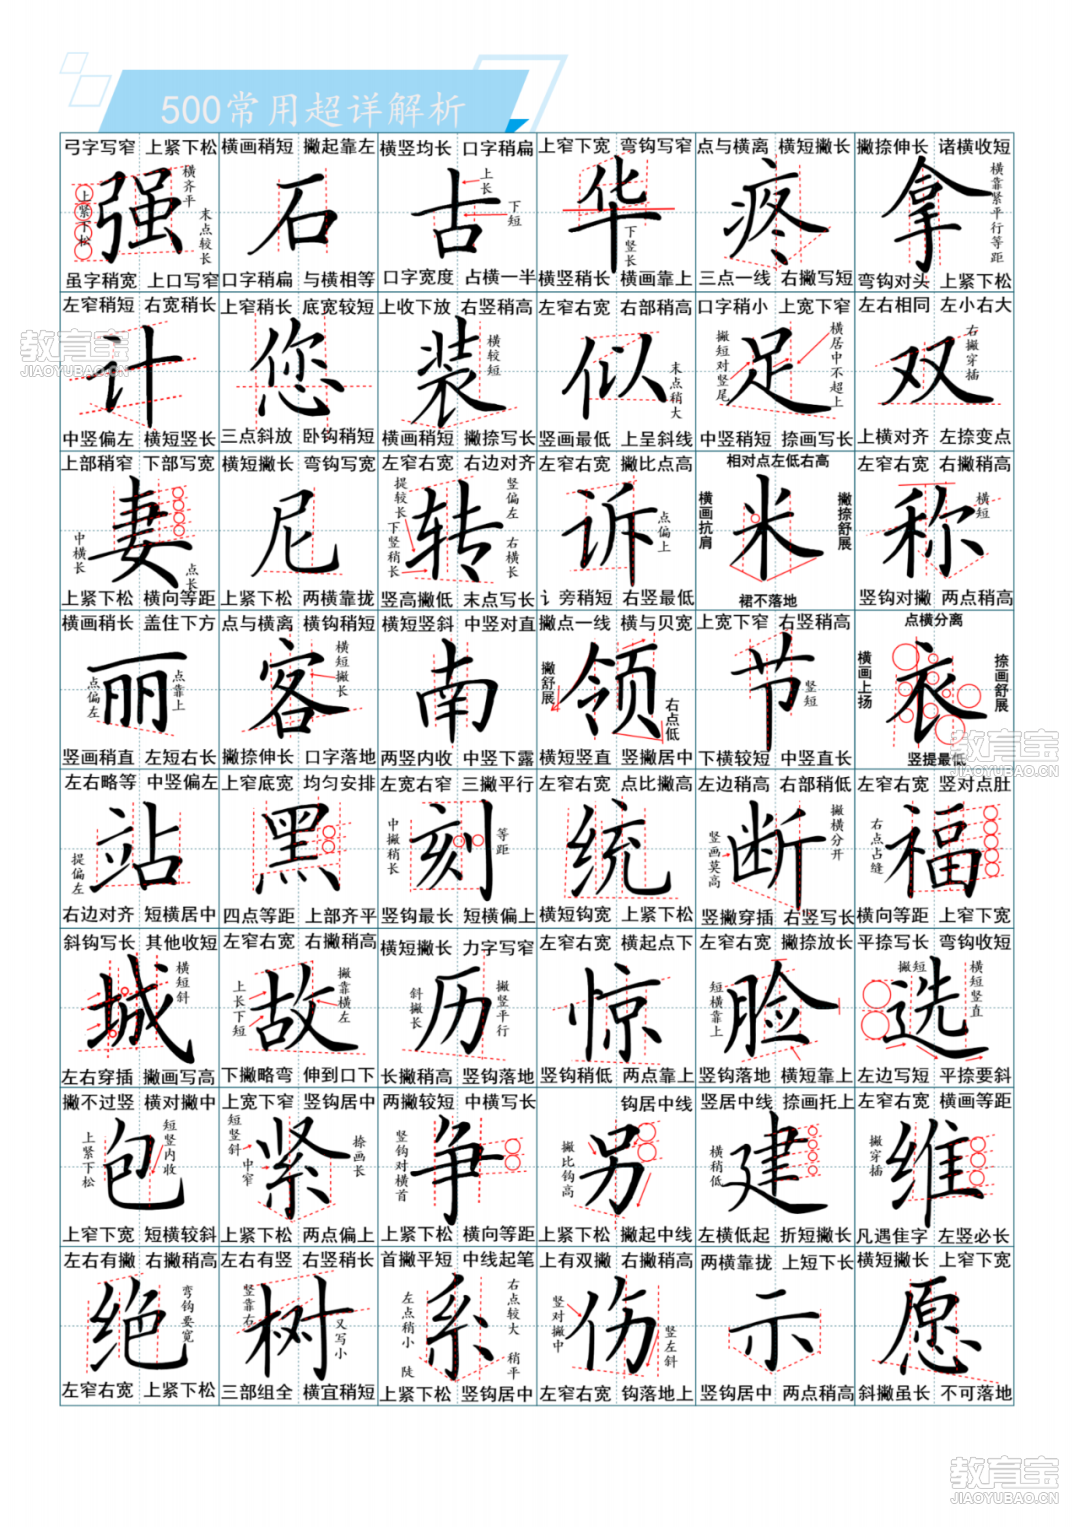 500常用超详解析
弓字写窄 上紧下松 横画稍短 撇起靠左 横竖均长 口字稍扁 上窄下宽 弯钩写窄 点与横离 横短撇长 撇捺伸长 诸横收短
强 石 古 华 疼 拿
上紧下松 横齐平 末点较长 上长 下短 下竖长 横靠紧平行等距
虽字稍宽 上口写窄 口字稍扁 与横相等 口字宽度 占横一半 横竖稍长 横画靠上 三点一线 右撇写短 弯钩对头 上紧下松
左窄稍短 右宽稍长 上窄稍长 底宽较短 上收下放 右竖稍高 左窄右宽 右部稍高 口字稍小 上宽下窄 左右相同 左小右大
计 您 装 似 足 双
横较短 末点稍大 撇短对竖尾 横居中不超上 右撇穿插
中竖偏左 横短竖长 三点斜放 卧钩稍短 横画稍短 撇捺写长 竖画最低 上呈斜线 中竖稍短 捺画写长 上横对齐 左捺变点
上部稍窄 下部写宽 横短撇长 弯钩写宽 左窄右宽 右边对齐 左窄右宽 撇比点高 相对点左低右高 左窄右宽 右撇稍高
妻 尼 转 诉 米 称
中横长 点长 提较长 下竖稍长 竖偏左 右横长 点偏上 横画抗肩 撇捺舒展 横短
上紧下松 横向等距 上紧下松 两横靠拢 竖高撇低 末点写长 讠旁稍短 右竖最低 裙不落地 竖钩对撇 两点稍高
横画稍长 盖住下方 点与横离 横钩稍短 横短竖斜 中竖对直 撇点一线 横与贝宽 上宽下窄 右竖稍高 点横分离
丽 客 南 领 节 衣
点偏左 点靠上 横短撇长 撇舒展 右点低 竖短 横画上扬 捺画舒展
竖画稍直 左短右长 撇捺伸长 口字落地 两竖内收 中竖下露 横短竖直 竖撇居中 下横较短 中竖直长 竖提最低
左右略等 中竖偏左 上窄底宽 均匀安排 左宽右窄 三撇平行 左窄右宽 点比撇高 左边稍高 右部稍低 左窄右宽 竖对点肚
站 黑 刻 统 断 福
提偏左 中撇稍长 等距 竖画莫高 撇横分开 右点占缝
右边对齐 短横居中 四点等距 上部齐平 竖钩最长 短横偏上 横短钩宽 上紧下松 竖撇穿插 右竖写长 横向等距 上窄下宽
斜钩写长 其他收短 左窄右宽 右撇稍高 横短撇长 力字写窄 左窄右宽 横起点下 左窄右宽 撇捺放长 平捺写长 弯钩收短
城 故 历 惊 脸 选
横短斜 上长下短 撇靠横左 斜撇长 撇竖平行 短横靠上 撇短 横短竖直
左右穿插 撇画写高 下撇略弯 伸到口下 长撇稍高 竖钩落地 竖钩稍低 两点靠上 竖钩落地 横短靠上 左边写短 平捺要斜
撇不过竖 横对撇中 上宽下窄 竖钩居中 两撇较短 中横写长 钩居中线 竖居中线 捺画托上 左窄右宽 横画等距
包 紧 争 另 建 维
上紧下松 短竖内收 短竖斜 中窄 捺画长 竖钩对横首 撇比钩高 横稍低 撇穿插
上窄下宽 短横较斜 上紧下松 两点偏上 上紧下松 横向等距 上紧下松 撇起中线 左横低起 折短撇长 凡遇隹字 左竖必长
左右有撇 右撇稍高 左右有竖 右竖稍长 首撇平短 中线起笔 上有双撇 右撇稍高 两横靠拢 上短下长 横短撇长 上窄下宽
绝 树 系 伤 示 愿
弯钩要宽 竖靠右 又写小 左点稍小 陡 右点较大 稍平 竖对撇中 竖左斜
左窄右宽 上紧下松 三部组全 横宜稍短 上紧下松 竖钩居中 左窄右宽 钩落地上 竖钩居中 两点稍高 斜撇虽长 不可落地
教育宝
JIAOYUBAO.CN
教育宝
JIAOYUBAO.CN
教育宝
JIAOYUBAO.CN